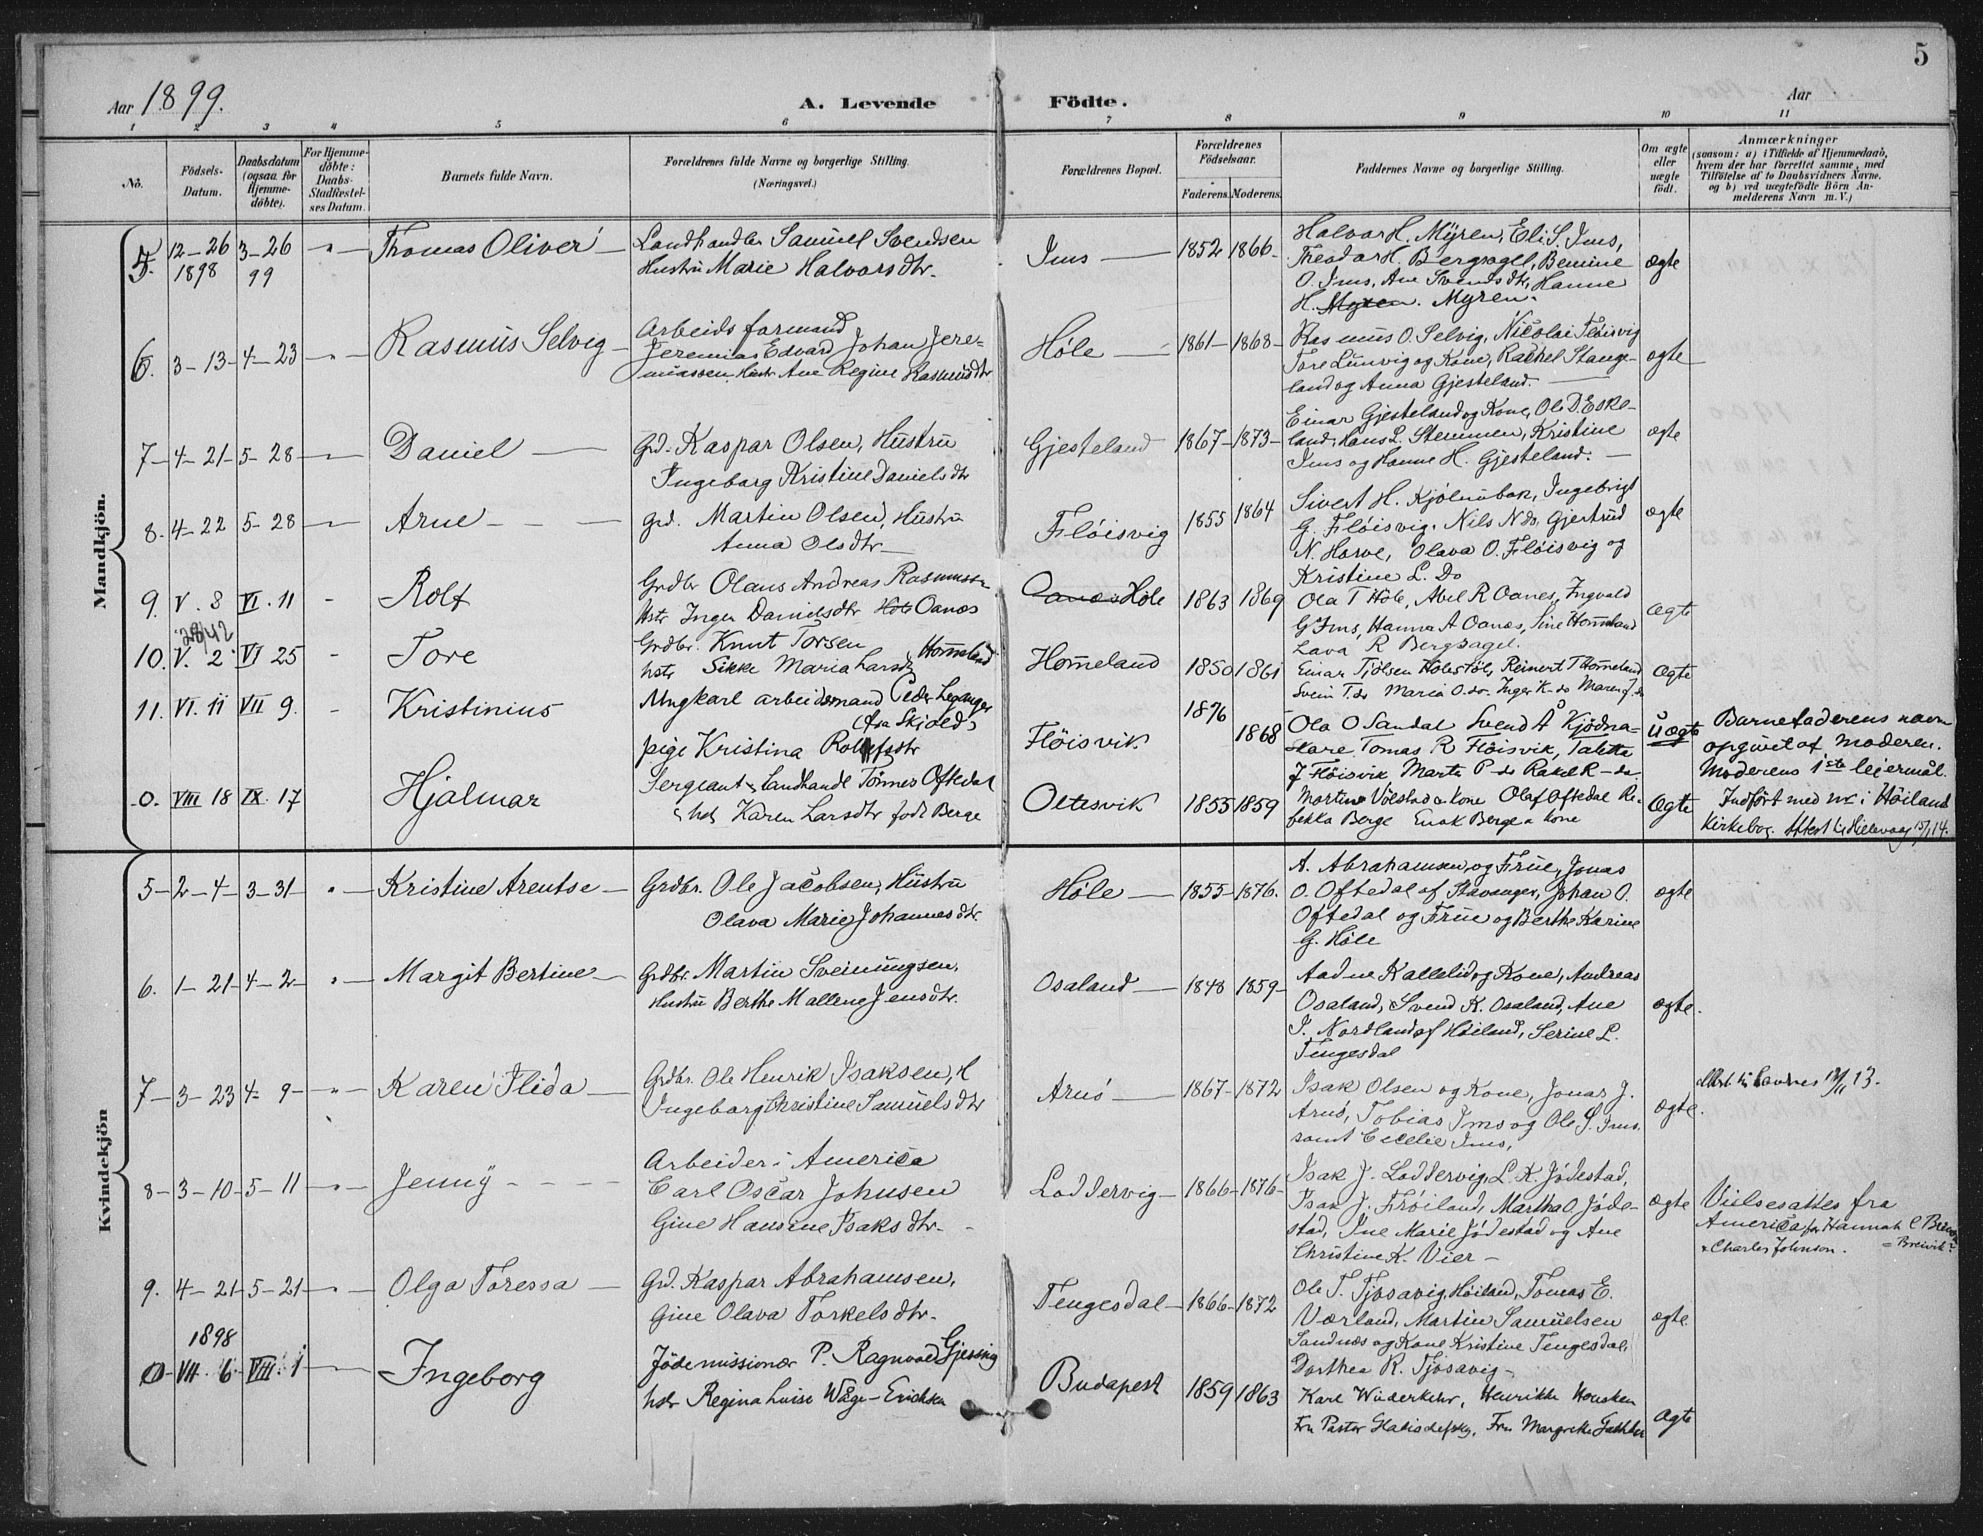 5
Aar 1899.
A. Levende Födte.
Aar
1 2 3 4 5 6 7 8 9 10 11
No.
Födsels-Datum.
Daabsdatum (ogsaa for Hjemme-döbte).
For Hjemme-döbte: Daabs-Stadfæstel-ses Datum.
Barnets fulde Navn.
Forældrenes fulde Navne og borgerlige Stilling. (Næringsvei.)
Forældrenes Bopæl.
Forældrenes Födselsaar.
Faderens. Moderens.
Faddernes Navne og borgerlige Stilling.
Om ægte eller uægte født.
Anmærkninger
(saasom: a) i Tilfælde af Hjemmedaab,
hvem der har forrettet samme, med
Tilföielse af to Daabsvidners Navne.
og b) ved uægtefödte Börn An-
melderens Navn m. V.)
Mandkjön.
5. 12–26 1898 3–26 99 Thomas Oliver
Landhandler Samuel Svendsen
Hustru Marie Halvorsdtr.
Ims 1852 1866
Halvor H. Myren, Eli S. Ims,
Theodor H. Bergsagel, Bemine
O. Ims, Ane Svendsdtr, Hanne
H. Myren. Myren.
ægte
6. 3–13–4–23 Rasmus Selvig
Arbeidsformand
Jeremias Edvard Johan Jere-
miassen, Hustr Ane Regine Rasmusdtr
Høle 1861–1868
Rasmus O. Selvig, Nicolai Fløisvig
Tore Lunvig og Kone, Rachel Stange-
land og Anna Gjesteland.
ægte
7–4–21–5–28 Daniel
Grd. Kaspar Olsen, Hustru
Ingeborg Kristine Danielsdtr
Gjesteland 1867–1873
Einar Gjesteland og Kone, Ole D. Eske-
land, Hans L. Stemmen, Kristine
Ims og Hanne H. Gjesteland.
ægte
8. 4–22 5–28 Arne
Grd. Martin Olsen, Hustru
Anna Olsdtr
Fløisvig 1855 1864
Sivert H. Kjölumbak, Ingebrigt
G. Fløisvig. Nils N do, Gjertrud
N. Horve, Olava O. Fløisvig og
Kristine L. Do
ægte
9. V. 8 VI. 11 Rolf
Grdbr Olaus Andreas Rasmussen
Hstr Inger Danielsdtr Höle Oanæs
Oanæs Höle 1863 1869
Ola T Höle, Abel R Oanes, Ingvald
G Ims, Hanna A Oanæs, Sine Hommeland
Lava R Bergsagel.
Ægte
28/42
10. V. 2. VI 25 Tore
Grdbr. Knut Torsen Hommeland
hstr Sikke Maria Larsdtr
Hommeland 1850 1861
Einar Tjölsen Hölestöl, Reinert T Hommeland
Svein T. do Maria O. do. Inger K. do Maren J. do
Ægte
11. VI. 11 VII 9. Kristinius
Ungkarl arbeidsmand Peder Leganger
(fra Skjold)
pige Kristina Rolfsdtr
Flöisvik 1876 1868
Ola O Sandal Svend Å Kjödna-
Tomas R Flöisvik, Talette
J Flöisvik Marta P do Rakel R do.
Uægte
Barnefaderens navn
opgivet af moderen.
Moderens 1ste leiermål.
0. VIII 18 IX. 17 Hjalmar
Sergeant & Landhandl Tönnes Oftedal
hst Karen Larsdtr født Berge
Oltesvik 1855 1859
Martin Völstad & Kone Olaf Oftedal Re-
bekka Berge Enok Berge & Kone
Ægte
Indført med nr i Höiland
Kirkebog. Attest til Hillevaag 15/1 14.
Kvindekjön
5–2–4–3–31 Kristine Arentse
Grdbr. Ole Jacobsen, Hustru
Olava Marie Johannesdtr.
Høle 1855–1876.
A. Abrahamsen og Frue, Jonas
O. Oftedal af Stavanger, Johan O.
Oftedal og Frue og Berthe Karine
G. Høle
ægte
6. 1–21–4–2 Margit Bertine
Grdbr. Martin Sveinungsen,
Hustru Berthe Mallene Jensdtr.
Osaland 1848 1859
Aadne Kallelid og Kone, Andreas
Osaland, Svend K. Osaland, Ane
I. Nordland af Høiland, Serine L.
Tengesdal
ægte.
7–3–23 4–9 Karen Ilida
Grdbr. Ole Henrik Isaksen, H
Ingeborg Christine Samuelsdtr
Arnø 1867–1872
Isak Olsen og Kone, Jonas J.
Arnø, Tobias Ims og Ole S. Ims.
samt Cecelie Ims,
ægte.
Attest til 13.
8–3–10–5–11 Jenny
Arbeider i America
Carl Oscar Johnsen
Gine Hansine Isaksdtr.
Loddervig 1866–1876
Isak J. Loddervig, L. K. Jødestad,
Isak J. Frøiland, Martha O. Jøde-
stad, Ine Marie Jødestad og Ane
Christine K. Vier
ægte
Vielsesattes fra
America for Hannah C Breivik
& Charles Johnson. = Breivik?
9. 4–21–5–21 Olga Toressa
Grd. Kaspar Abrahamsen,
Gine Olava Torkelsdtr.
Tengesdal 1866–1872
Ole T. Tjosavig, Høiland, Tomas E.
Værland, Martin Samuelsen
Sandnæs og Kone Kristine Tengesdal,
Dorthea R. Tjosavig
ægte
1898
0–VII. 6. VIII. 1 Ingeborg
Jødemissionær P. Ragnvald Gjessing
hstr Regina Luise Wåge-Erichsen
Budapest 1859 1863
Karl Wiederkehr, Henrikke
Fru Pastor Fru Margrethe
Ægte